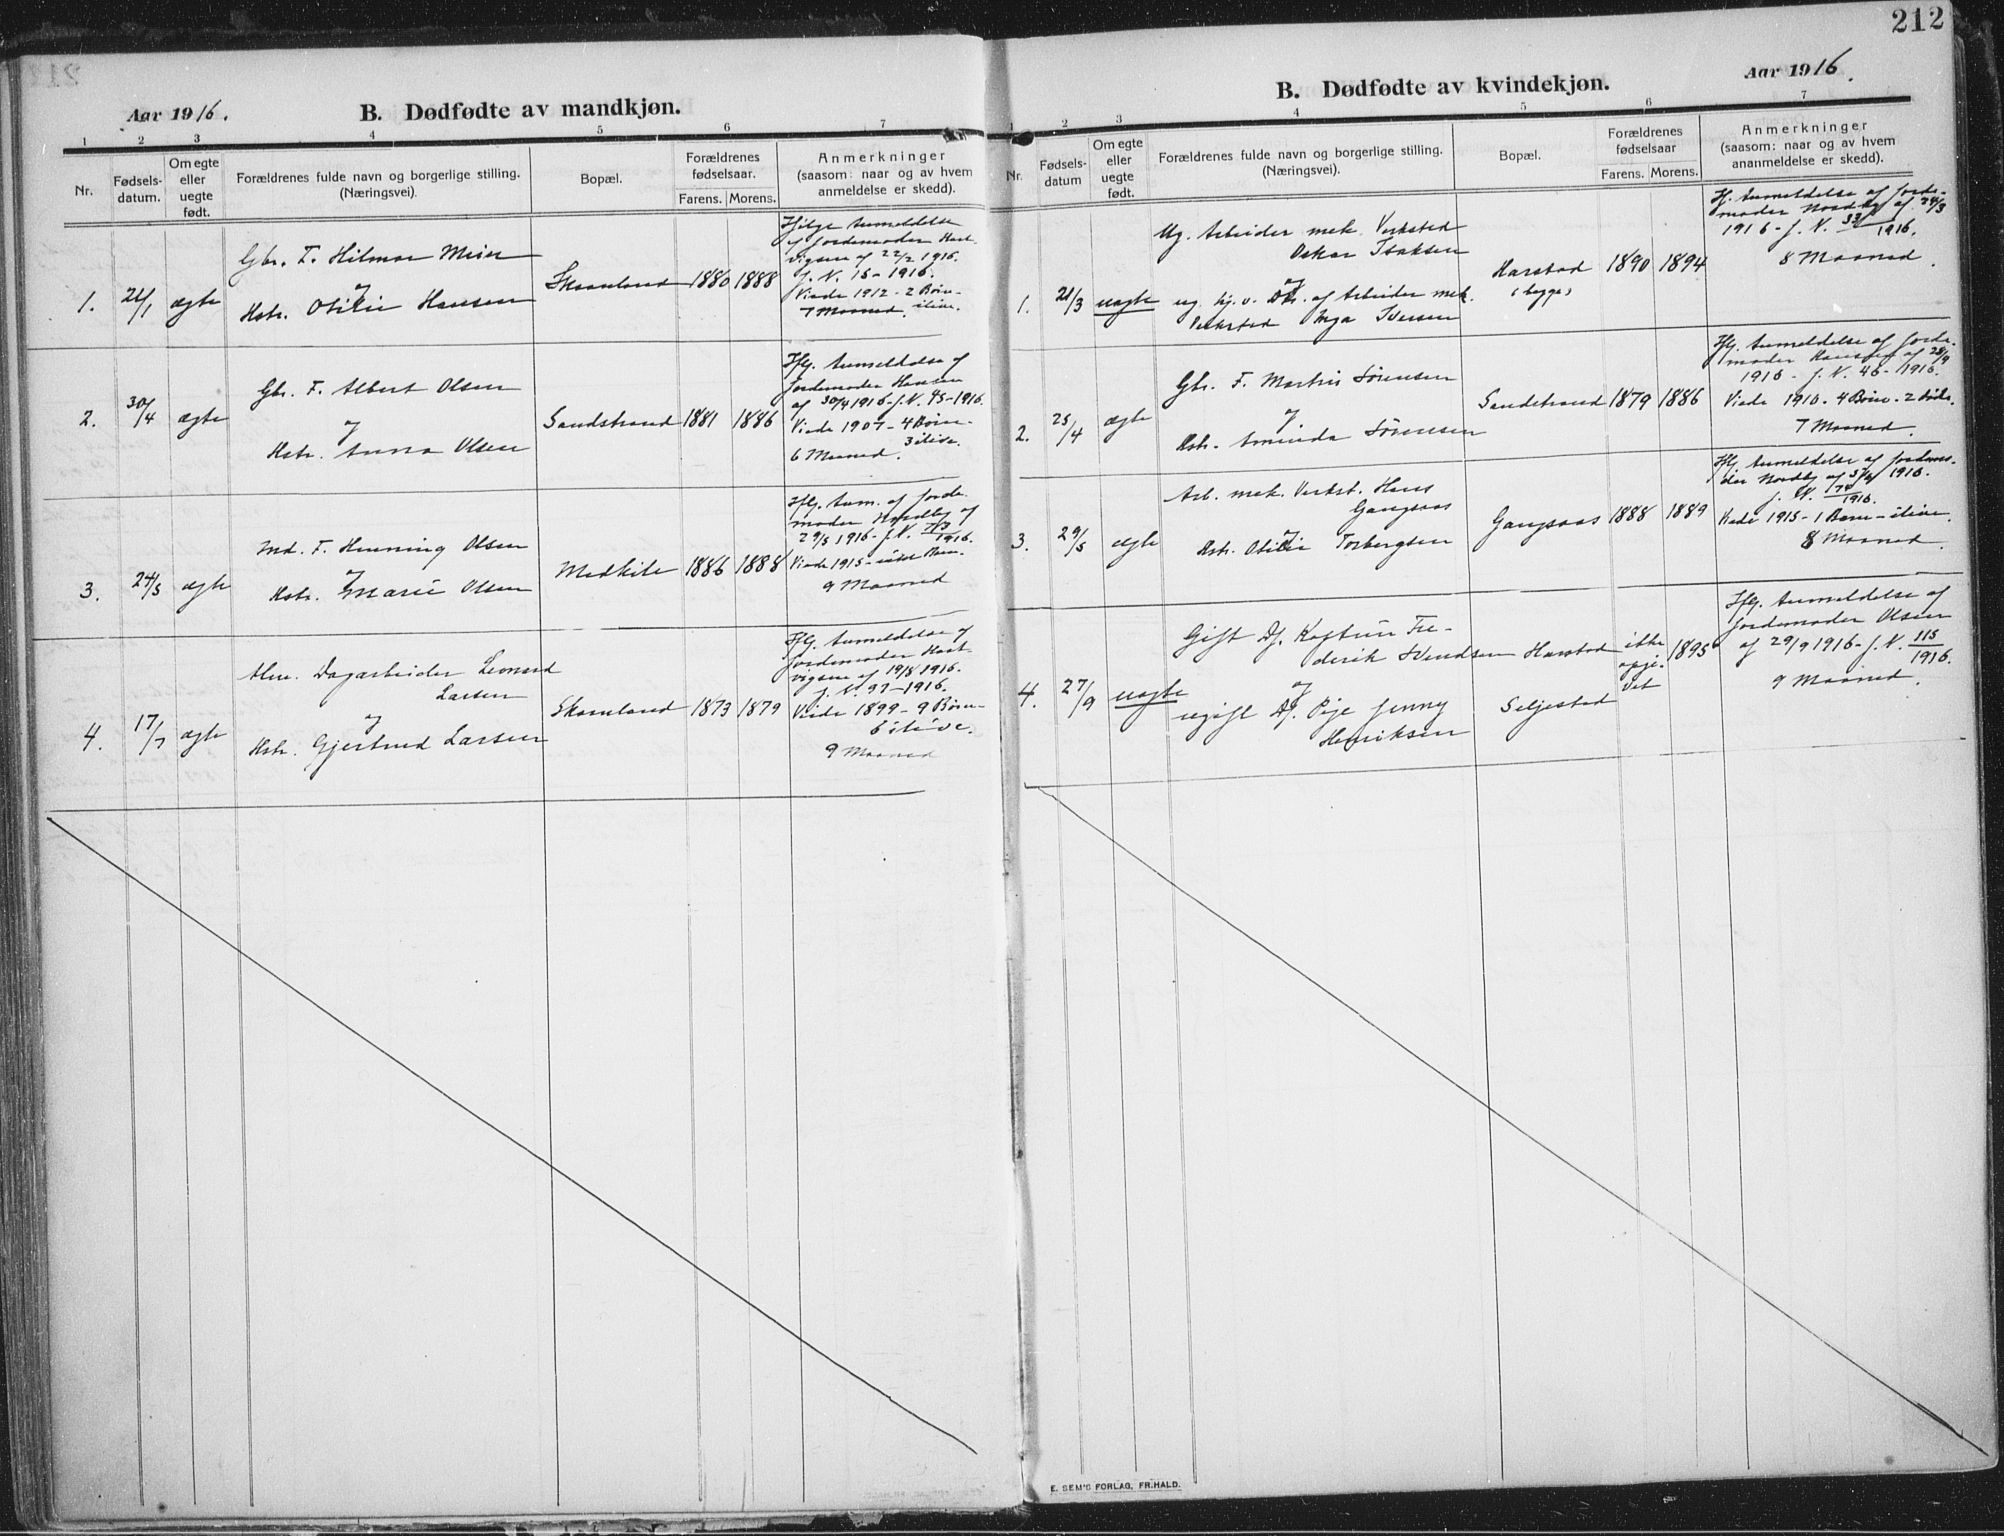 Aar 1916. B. Dødfødte av mandkjøn.
1 2 3 4 5 6 7
Nr. Fødsels-datum. Om egte eller uegte født. Forældrenes fulde navn og borgerlige stilling. (Næringsvei). Bopæl. Forældrenes fødselsaar. Farens. Morens. Anmerkninger (saasom: naar og av hvem anmeldelse er skedd).
1. 21/1 ægte
Gbr. F. Hilmar Meier
og
Hstr. Otilie Hansen
Skaanland 1880 1888
Ifølge Anmeldelse
af Jordemoder Hart-
vigsen af 22/2 1916.
J. N. 15-1916.
Viede 1912 - 2 Børn -
ilive.
7 Maaned.
2. 30/4 ægte
Gbr. F. Albert Olsen
og
Hstr. Anna Olsen
Sandstrand 1881 1886
Iflg. Anmeldelse af
Jordemoder Hansen
af 30/4 1916 - J. N. 45-1916.
Viede 1907 - 4 Børn -
3 ilive.
6 Maaned.
3. 24/5 ægte
Md. F. Henning Olsen
og
Hstr. Marie Olsen
Medkile 1886 1888
Iflg. Anm. af Jorde-
moder Nordby af
29/5 1916 - J. N. 73/1916.
Viede 1915 - intet Barn -
9 Maaned
4. 17/7 ægte
Alm. Dagarbeider Leonard
Larsen
og
Hstr. Gjertrud Larsen
Skaanland 1873 1879
Iflg. Anmeldelse af
Jordemoder Hart-
vigsen af 19/8 1916.
J. N. 97-1916.
Viede 1899 - 9 Børn -
6 ilive.
9 Maaned
212
Aar 1916.
B. Dødfødte av kvindekjøn.
1 2 3 4 5 6 7
Nr. Fødsels-datum Om egte eller uegte født. Forældrenes fulde navn og borgerlige stilling. (Næringsvei). Bopæl. Forældrenes fødselsaar Farens. Morens. Anmerkninger (saasom: naar og av hvem ananmeldelse er skedd).
1. 21/3 uægte
Ug. Arbeider mek. Verksted
Oskar Isaksen
og
ug. hj. v. Dtr. af Arbeider mek.
Verksted Inga Iversen
Harstad
(begge)
1890 1894
If. Anmeldelse af Jorde-
moder Nordby af 24/3
1916 - J. N. 33/1916.
8 Maaned.
2. 25/4 ægte
Gbr. F. Martin Sørensen
og
Hstr. Aminda Sørensen
Sandstrand 1879 1886
Iflg. Anmeldelse af Jorde-
moder Hansen af 28/4
1916 - J. N. 46-1916.
Viede 1910 - 4 Børn - 2 døde.
7 Maaned.
3. 29/5 ægte
Arb. mek. Verkst. Hans
Gangsaas
og
Hstr. Otilie Torbergsen
Gangsaas 1888 1889
Iflg. Anmeldelse af Jordemo-
der Nordby af 1916.
J. N. 74/1916.
Viede 1915 - 1 Barn - ilive.
8 Maaned.
4. 27/9 uægte
Gift Dj. Kaptein Fre-
derik Svendsen
og
ugift Dj. Pige Jenny
Henriksen
Harstad
Seljestad
ikke
opgi-
vet
1895
Iflg. Anmeldelse af
Jordemoder Olsen
af 29/9 1916 - J. N. 115/1916.
9 Maaned.
E. SEM'S FORLAG, FR.HALD.